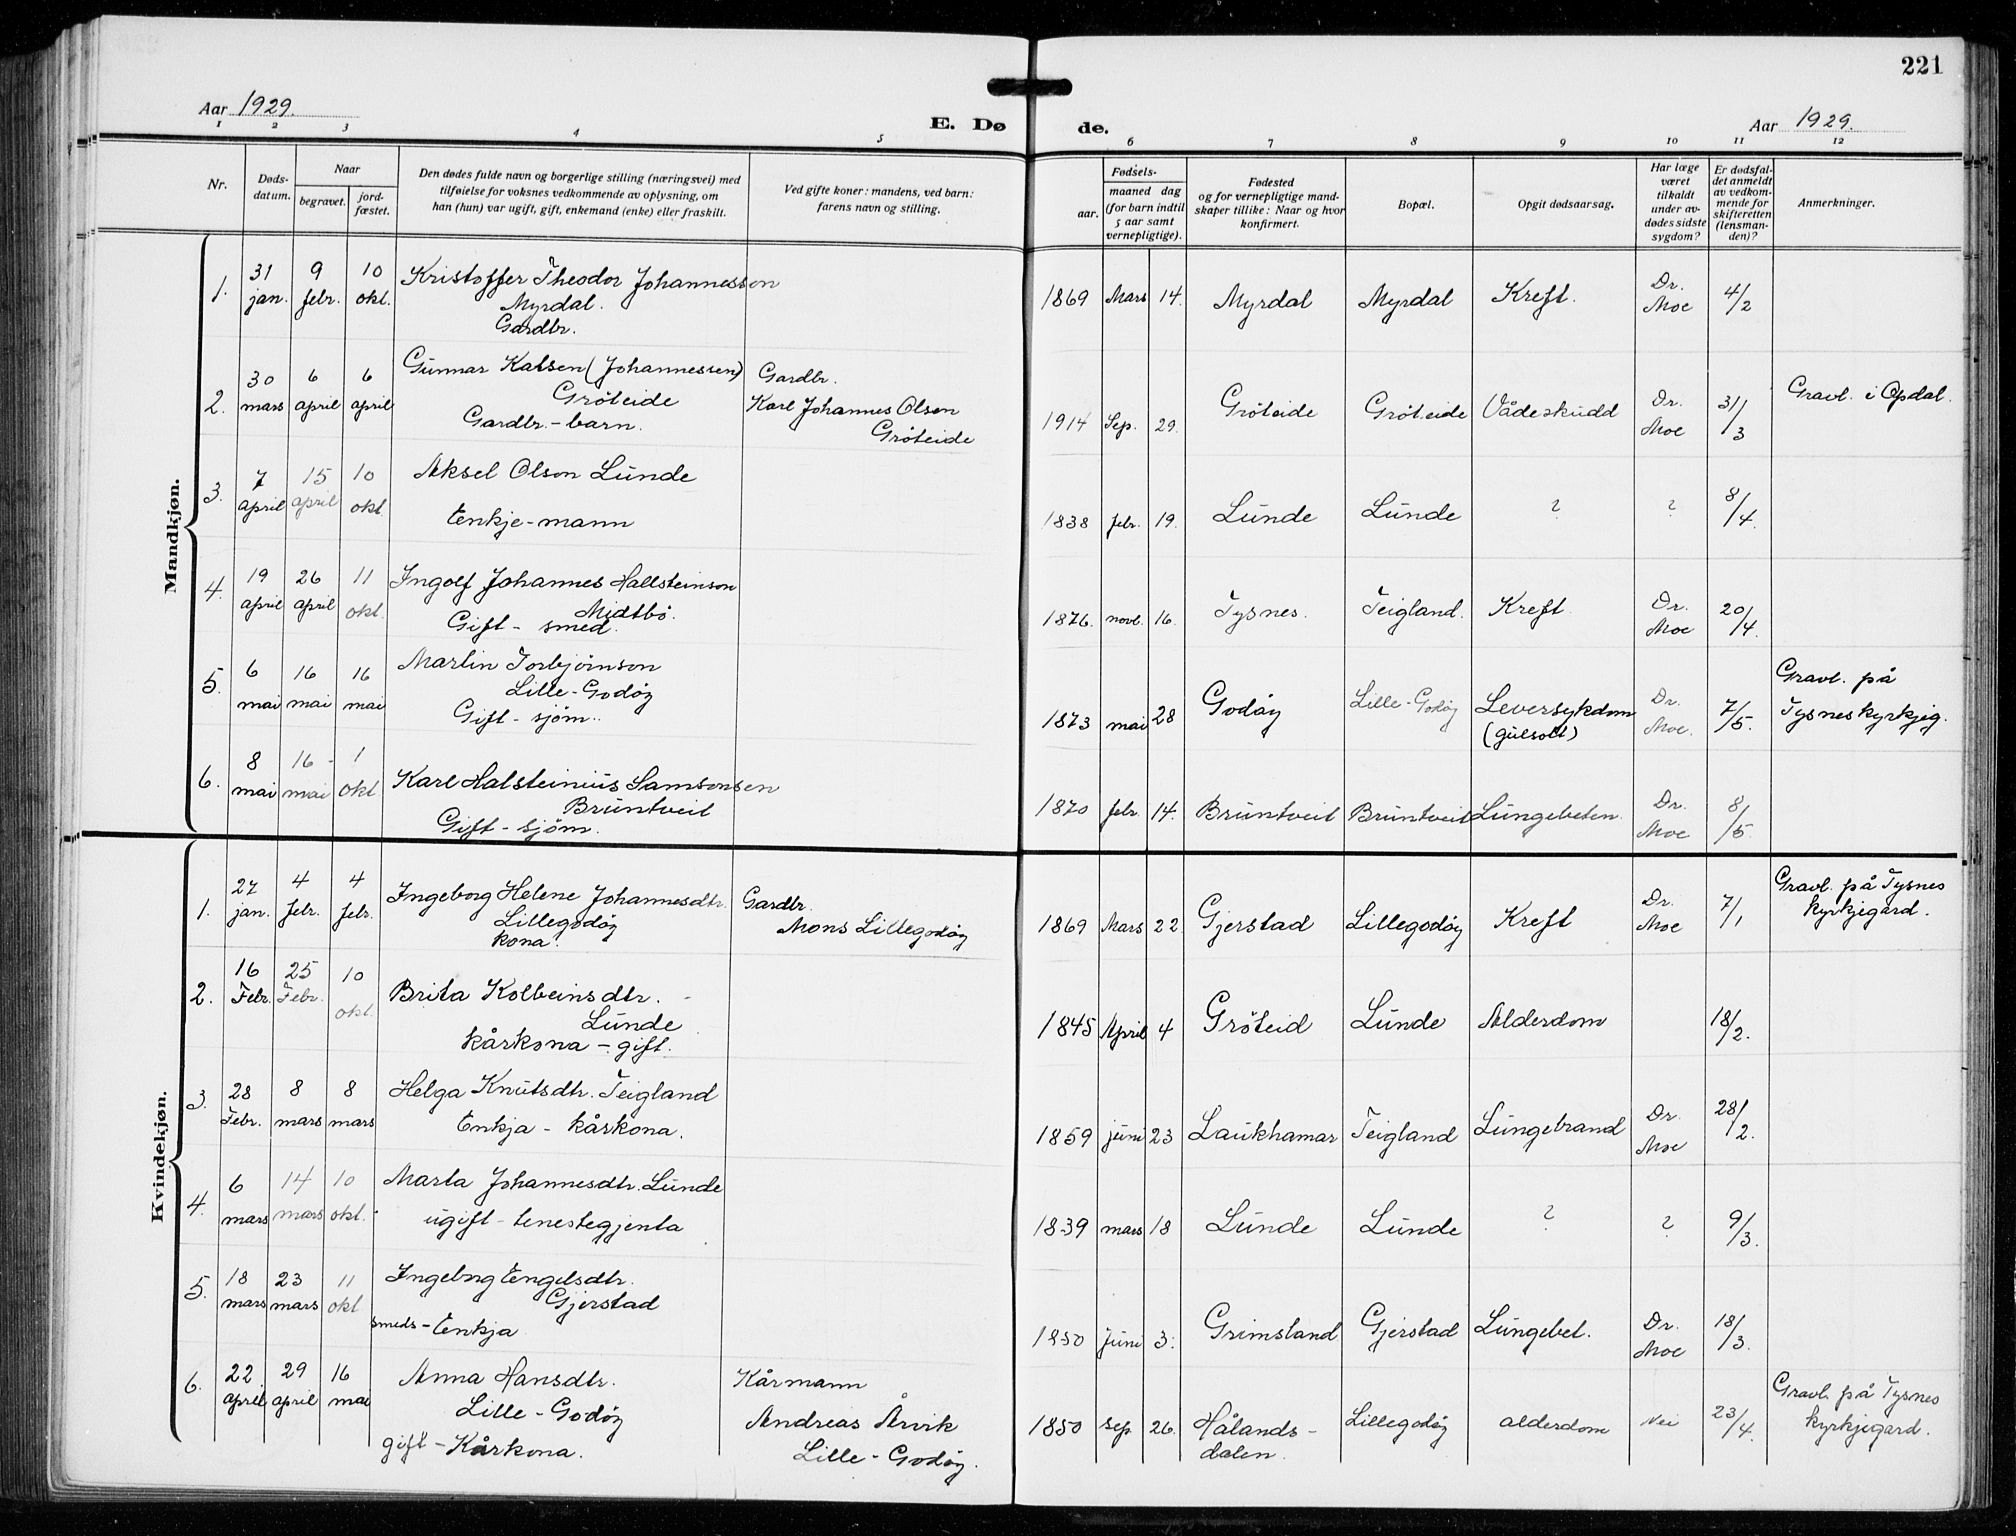 221
Aar 1929.
E. Dø de.
Aar 1929.
1 2 3 4 5 6 7 8 9 10 11 12
Nr.
Døds-
datum.
Naar
begravet.
jord-
fæstet.
Den dødes fulde navn og borgerlige stilling (næringsvei) med
tilføielse for voksnes vedkommende av oplysning, om
han (hun) var ugift, gift, enkemand (enke) eller fraskilt.
Ved gifte koner: mandens, ved barn:
farens navn og stilling.
Fødsels-
aar.
maaned dag
(for barn indtil
5 aar samt
vernepligtige).
Fødested
og for vernepligtige mand-
skaper tillike: Naar og hvor
konfirmert.
Bopæl.
Opgit dødsaarsag.
Har læge
været
tilkaldt
under av-
dødes sidste
sygdom?
Er dødsfal-
det anmeldt
av vedkom-
mende for
skifteretten
(lensman-
den)?
Anmerkninger.
Mandkjøn.
1. 31 jan. 9 febr. 10 okt. Kristoffer Theodor Johannesson
Myrdal.
Gardbr.
1869 Mars 14. Myrdal Myrdal Kreft. Dr. Moe 4/2
2. 30 mars 6 april 6 april Gunnar Kalsen (Johannessen)
Gröteide
Gardbr.-barn.
Gardbr.
Karl Johannes Olsen
Gröteide
1914 Sep. 29. Gröteide Gröteide Vådeskudd Dr. Moe 31/3 Gravl. i Opdal.
3. 7 april 15 april 10 okt. Aksel Olson Lunde
Enkje-mann
1838 febr. 19. Lunde Lunde ? ? 8/4.
4. 19 april 26 april 11 okt. Ingolf Johannes Hallsteinson
Midtbö.
Gift - smed.
1876. novb. 16. Tysnes. Teigland. Kreft. Dr. Moe 20/4.
5. 6 mai 16 mai 16 mai Martin Torbjörnson
Lille-Godöy
Gift - sjöm..
1873 mai 28 Godöy Lille-Godöy Leversykdom
(gulsott)
Dr. Moe. 7/5. Gravl. på
Tysneskyrkjeg.
6. 8 mai 16 mai 1 okt Karl Halsteinius Samsonsen
Bruntveit
Gift - sjöm.
1870 febr. 14. Bruntveit Bruntveit Lungebeten. Dr. Moe 8/5.
Kvindekjøn.
1. 27 jan. 4 febr. 4 febr. Ingeborg Helene Johannesdtr.
Lillegodöy
kona.
Gardbr.
Mons Lillegodöy
1869 Mars 22 Gjerstad Lillegodöy Kreft Dr. Moe 7/1 Gravl. på Tysnes
kyrkjegard.
2. 16 Febr. 25 Febr. 10 okt. Brita Kolbeinsdtr.
Lunde
kårkona - gift.
1845 April 4 Gröteid Lunde Alderdom 18/2.
3. 28 Febr. 8 mars 8 mars Helga Knutsdtr. Teigland
Enkja - kårkona.
1859 juni 23 Laukhamar Teigland Lungebrand Dr. Moe 28/2.
4. 6 mars 14 mars 10 okt. Marta Johannesdtr. Lunde
ugift - tenestegjenta
1839 mars 18 Lunde Lunde ? ? 9/3.
5. 18 mars 23 mars 11 okt Ingeborg Engelsdtr.
Gjerstad
smeds-Enkja
1850 juni 3. Grimsland Gjerstad Lungebet. Dr. Moe 18/3.
6. 22 april 29 april 16 mai Anna Hansdtr.
Lille-Godöy
gift - Kårkona.
Kårmann
Andreas Årvik
Lille-Godöy.
1850 sep. 26. Hålands-
dalen.
Lillegodöy alderdom Nei 23/4. Gravl. på Tysnes
kyrkjegard.